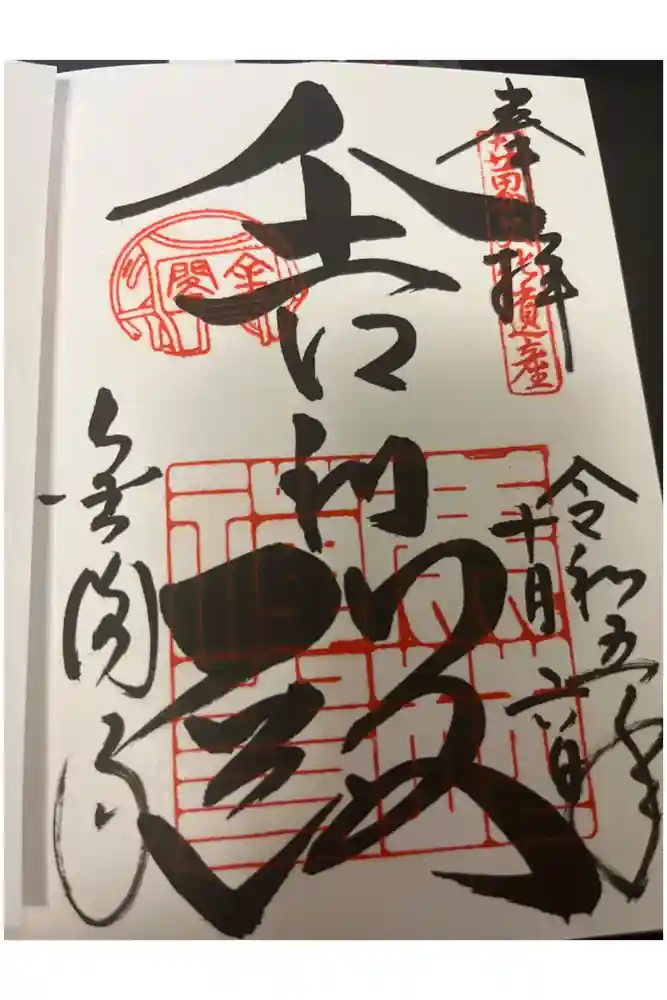 奉拝
世界文化遺産
令和五年
十月六日
舎利殿
金閣
金閣寺